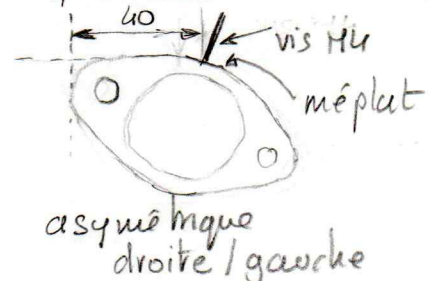 40
vis M4
méplat
asymétrique
droite / gauche